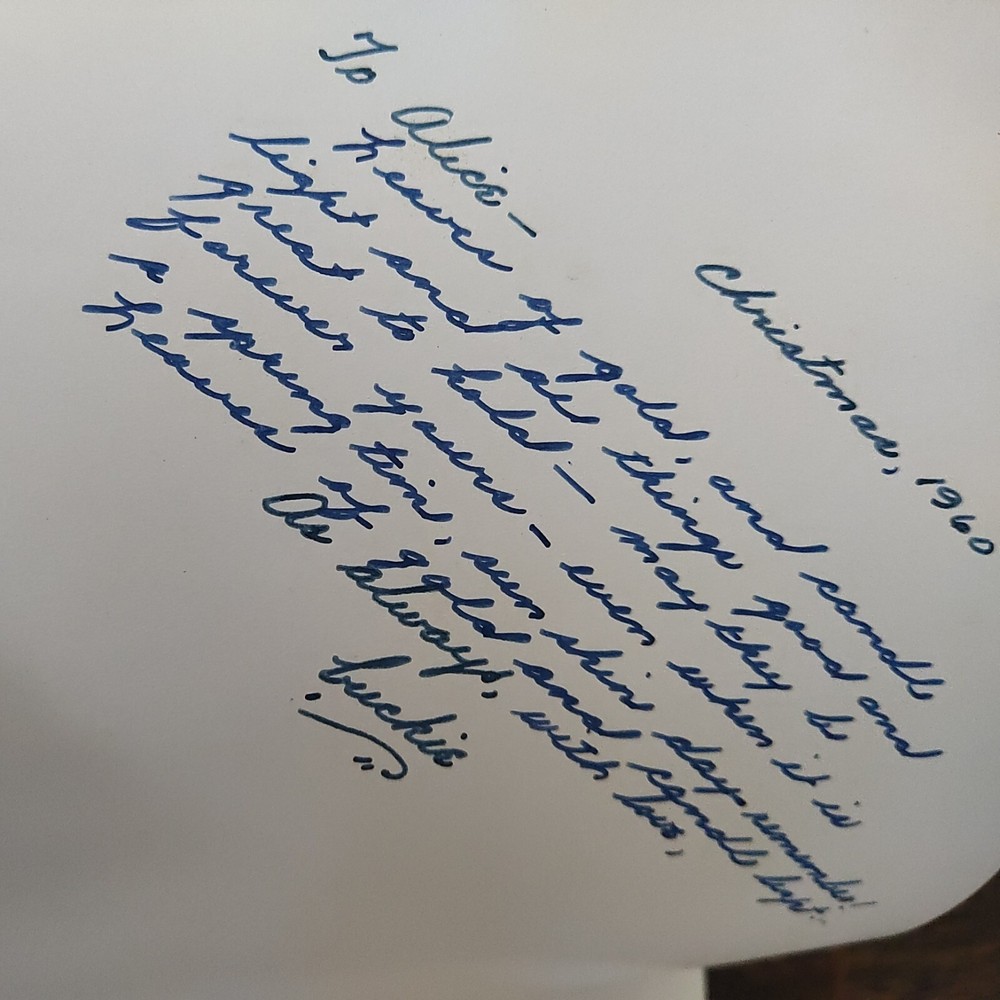 Christmas, 1960
To Alice –
heaven of gold, and candle
light and all things good and
great to hold – may they be
forever yours – even when it is
a spring time, sun shine day. remember!
heaven of gold and candle light.
As always, with love,
buckie